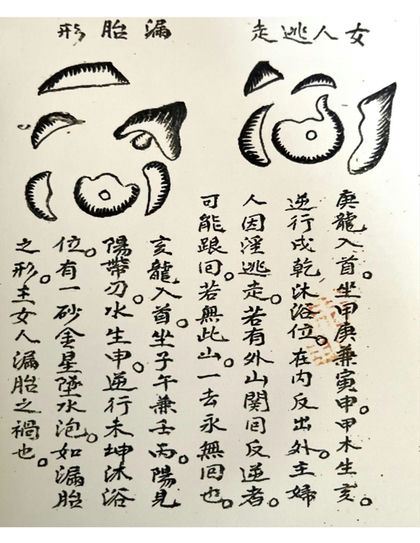 女人逃走
庚龍入首。坐甲庚兼寅申。甲木生亥。
逆行戌乾沐浴位。在內反出外。主婦
人因淫逃走。若有外山關回反逆者。
可能跟回。若無此山。一去永無回也。
漏胎形
亥龍入首。坐子午兼壬丙。陽見
陽帶刃。水生申。逆行未坤沐浴
位。有一砂金星墜水泡。如漏胎
之形。主女人漏胎之禍也。